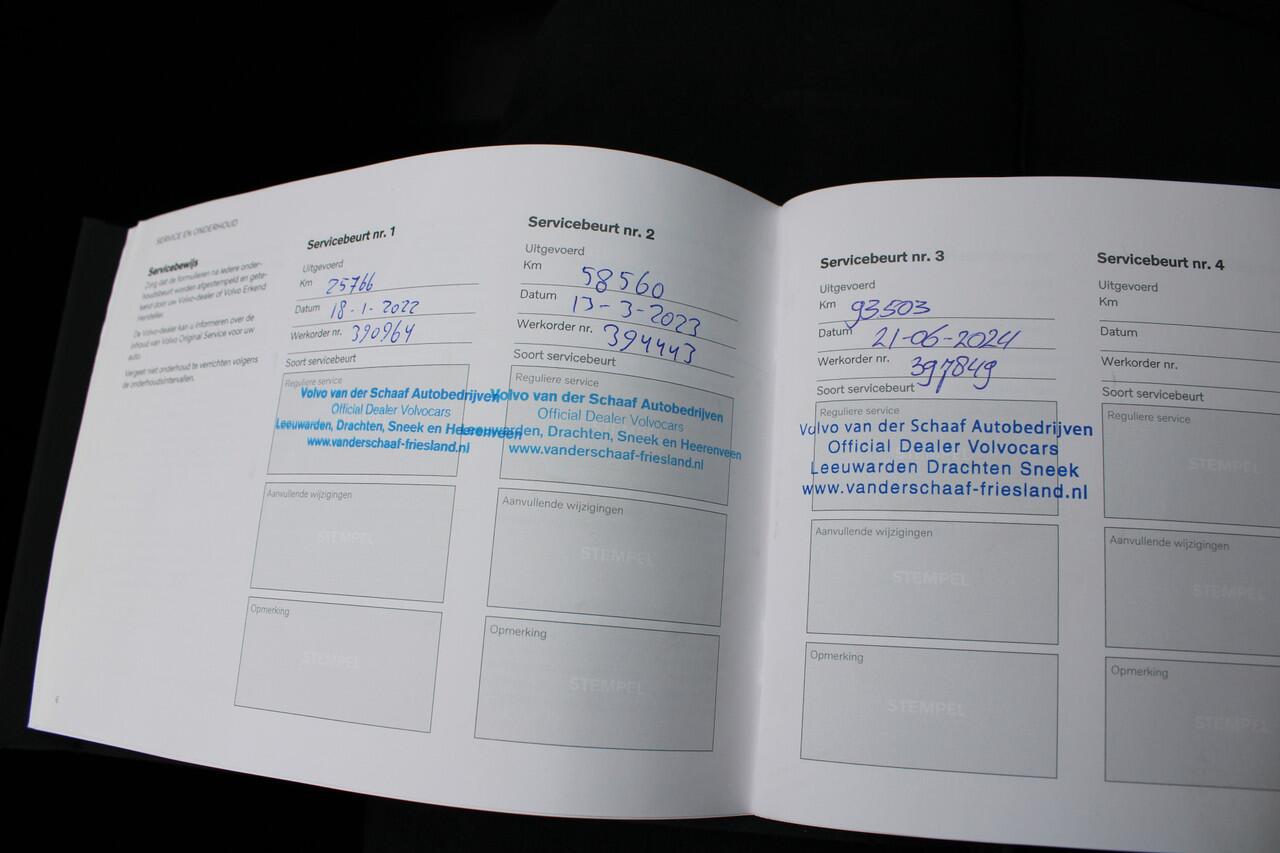 SERVICE EN ONDERHOUD
Servicebewijs
Zorg dat de formulieren na iedere onder-
houdsbeurt worden afgestempeld en gete-
kend door uw Volvo-dealer of Volvo Erkend
Hersteller.
De Volvo-dealer kan u informeren over de
inhoud van Volvo Original Service voor uw
auto.
Vergeet niet onderhoud te verrichten volgens
de onderhoudsintervallen.
6
Servicebeurt nr. 1
Uitgevoerd
Km 25766
Datum 18-1-2022
Werkorder nr. 390964
Soort servicebeurt
Reguliere service
Volvo van der Schaaf Autobedrijven
Official Dealer Volvocars
Leeuwarden, Drachten, Sneek en Heerenveen
www.vanderschaaf-friesland.nl
Aanvullende wijzigingen
STEMPEL
Opmerking
STEMPEL
Servicebeurt nr. 2
Uitgevoerd
Km 58560
Datum 13-3-2023
Werkorder nr. 394443
Soort servicebeurt
Reguliere service
Volvo van der Schaaf Autobedrijven
Official Dealer Volvocars
Leeuwarden, Drachten, Sneek en Heerenveen
www.vanderschaaf-friesland.nl
Aanvullende wijzigingen
STEMPEL
Opmerking
STEMPEL
Servicebeurt nr. 3
Uitgevoerd
Km 93503
Datum 21-06-2024
Werkorder nr. 397849
Soort servicebeurt
Reguliere service
Volvo van der Schaaf Autobedrijven
Official Dealer Volvocars
Leeuwarden Drachten Sneek
www.vanderschaaf-friesland.nl
Aanvullende wijzigingen
STEMPEL
Opmerking
STEMPEL
Servicebeurt nr. 4
Uitgevoerd
Km
Datum
Werkorder nr.
Soort servicebeurt
Reguliere service
STEMPEL
Aanvullende wijzigingen
STEMPEL
Opmerking
STEMPEL